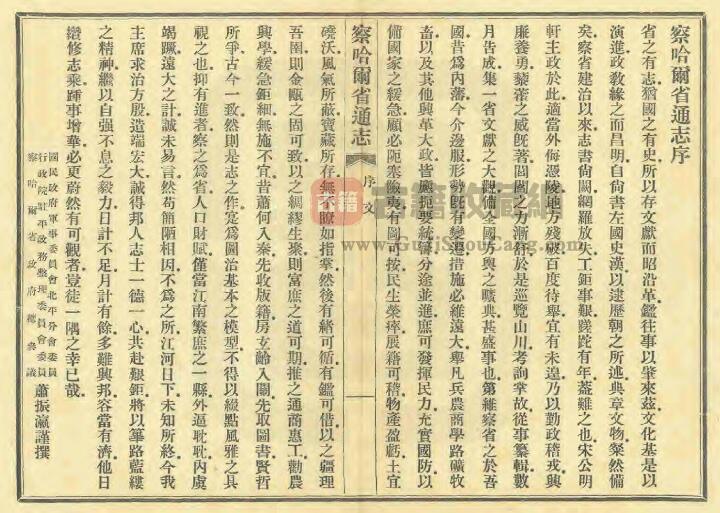 察哈爾省通志序
省之有志猶國之有史所以存文獻而昭沿革鑑往事以肇來茲文化基是以
演進政教緣之而昌明自尚書左國史漢以逮歷朝之所述典章文物粲然備
矣察省建治以來志書尚闕網羅放失工鉅事艱蹉跎有年蓋難之也宋公明
軒主政於此適當外侮憑陵地方殘破百度待舉宜有未遑乃以勤政稽戎興
廉養勇藜莠之威旣著閭閻之力漸紓於是巡覽山川考詢掌故從事纂輯數
月告成集一省文獻之大觀備全國方輿之曠典甚盛事也第維察省之於吾
國昔為內藩今介邊服形勢旣有變遷措施必維遠大舉凡兵農商學路礦牧
畜以及其他興革大政皆應扼要統籌分途並進庶可發揮民力充實國防以
備國家之緩急顧必阨塞險夷有圖可按民生榮瘁展籍可稽物產盈虧土宜
察哈爾省通志
序文
一
磽沃風氣所蔽寶藏所存無不瞭如指掌然後有緒可循有鑑可借以之疆理
吾圉則金甌之固可致以之綢繆生聚則富庶之道可期推之通商惠工勸農
興學緩急鉅細無施不宜昔蕭何入秦先收版籍房玄齡入關先取圖書賢哲
所爭古今一致然則是志之作寔為圖治基本之模型不得以緞點風雅之具
視之也抑有進者察之為省人口財賦僅當江南繁庶之一縣外逼耽耽內虞
竭蹶遠大之計誠未易言然苟簡陋相因不為之所江河日下未知所終今我
主席求治方殷造端宏大誠得邦人志士一德一心共赴艱鉅將以篳路藍縷
之精神繼以自强不息之毅力日計不足月計有餘多難興邦容當有濟他日
纉修志乘踵事增華必更蔚然有可觀者豈徒一隅之幸已哉
國民政府軍事委員會北平分會委員
行政院駐平政務整理委員會委員
察哈爾省政府總參議
蕭振瀛謹撰
古籍收藏網
www.GujiShouCang.com